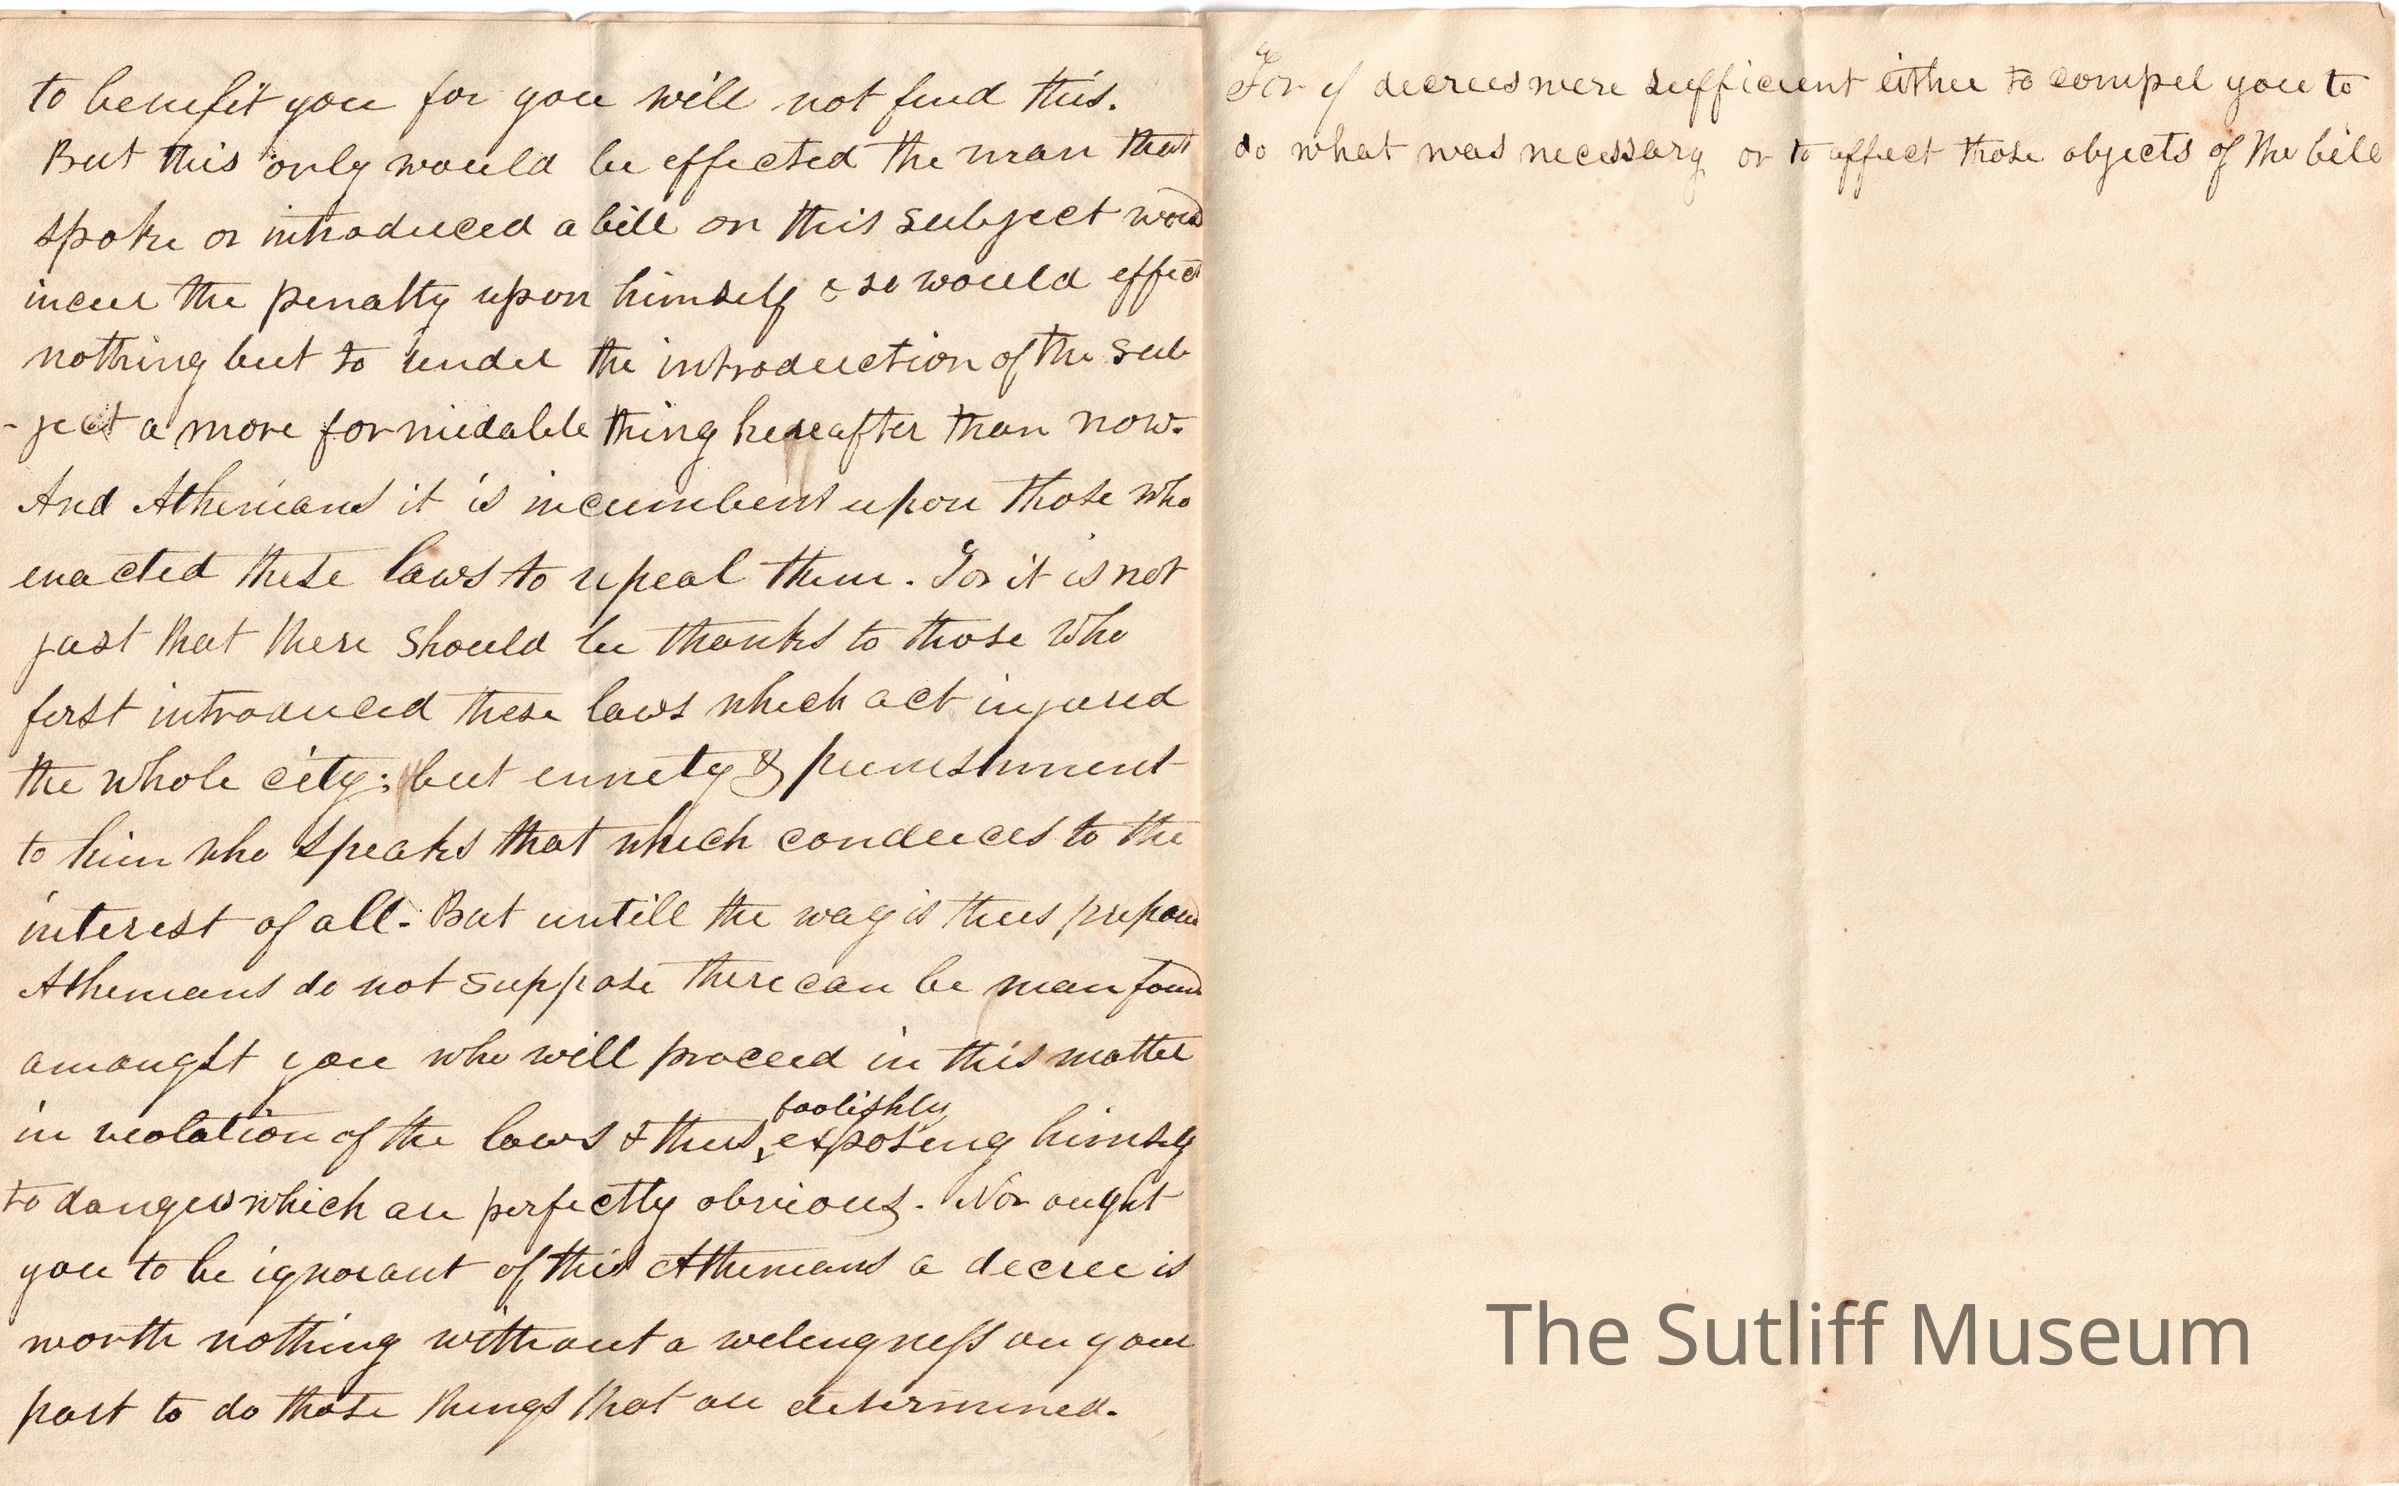 to benefit you for you will not find this.
But this only would be effected the man that
spoke or introduced a bill on this subject would
incur the penalty upon himself & so would effect
nothing but to render the introduction of the sub
-ject a more formidable thing hereafter than now.
And Athenians it is incumbent upon those who
enacted these laws to repeal them. For it is not
just that there should be thanks to those who
first introduced these laws which act injured
the whole city; but enmety & punishment
to him who speaks that which conduces to the
interest of all. But untill the way is thus prepared
Athenians do not suppose there can be man found
amongst you who will proceed in this matter
in violation of the laws & thus foolishly exposing himself
to dangers which are perfectly obvious. Nor ought
you to be ignorant of this Athenians a decree is
worth nothing without a welingness on your
part to do those things that are determined.
For if decrees were sufficient either to compel you to
do what was necessary or to affect those objects of the bill
The Sutliff Museum